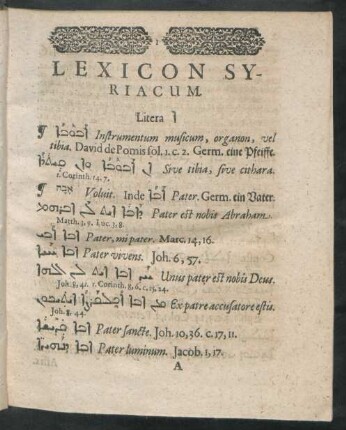 1
LEXICON SY-
RIACUM.
Litera ܐ
¶ Instrumentum musicum, organon, vel
tibia. David de Pomis fol. 1. c. 2. Germ. eine Pfeiffe.
Sive tibia, sive cithara.
1. Corinth. 14, 7.
¶ אבה Voluit. Inde ܐܒܐ Pater. Germ. ein Vater.
ܐܒܐ ܐܝܬ ܠܢ ܐܒܪܗܡ Pater est nobis Abraham.
Matth. 3, 9. Luc. 3, 8.
ܐܒܐ ܐܒܝ Pater, mi pater. Marc. 14, 16.
ܐܒܐ ܚܝܐ Pater vivens. Joh. 6, 57.
ܚܕ ܐܒܐ ܐܝܬ ܠܢ ܐܠܗܐ Unus pater est nobis Deus.
Joh. 8, 41. 1. Corinth. 8, 6. c. 15, 24.
Ex patre accusatore estis.
Joh. 8. 44.
ܐܒܐ ܩܕܝܫܐ Pater sancte. Joh. 10, 36. c. 17, 11.
ܐܒܐ ܕܢܗܝܪܐ Pater luminum. Jacob. 1, 17.
A